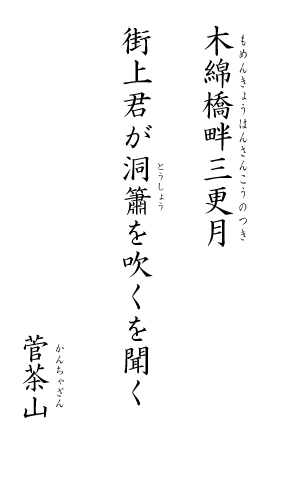 木綿橋畔三更月
もめんきょうはんさんこうのつき
街上君が洞簫を吹くを聞く
とうしょう
菅茶山
かんちゃざん